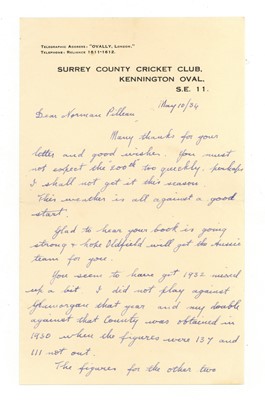 Telegraphic Address: "OVALLY, LONDON."
Telephone: RELIANCE 1811-1812.
SURREY COUNTY CRICKET CLUB,
KENNINGTON OVAL,
S.E. 11.
May 10/34
Dear Norman
Many thanks for your
letter and good wishes. You must
not expect the 200th too quickly, perhaps
I shall not get it this season.
This weather is all against a good
start.
Glad to hear your book is going
strong & hope Oldfield will get the Aussie
team for you.
You seem to have got 1932 mixed
up a bit. I did not play against
Glamorgan that year and my double
against that County was obtained in
1930 when the figures were 137 and
111 not out.
The figures for the other two